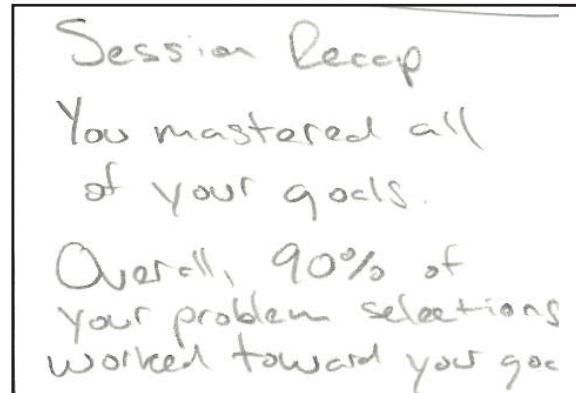 Session Recap
You mastered all
of your goals.
Overall, 90% of
your problem selections
worked toward your